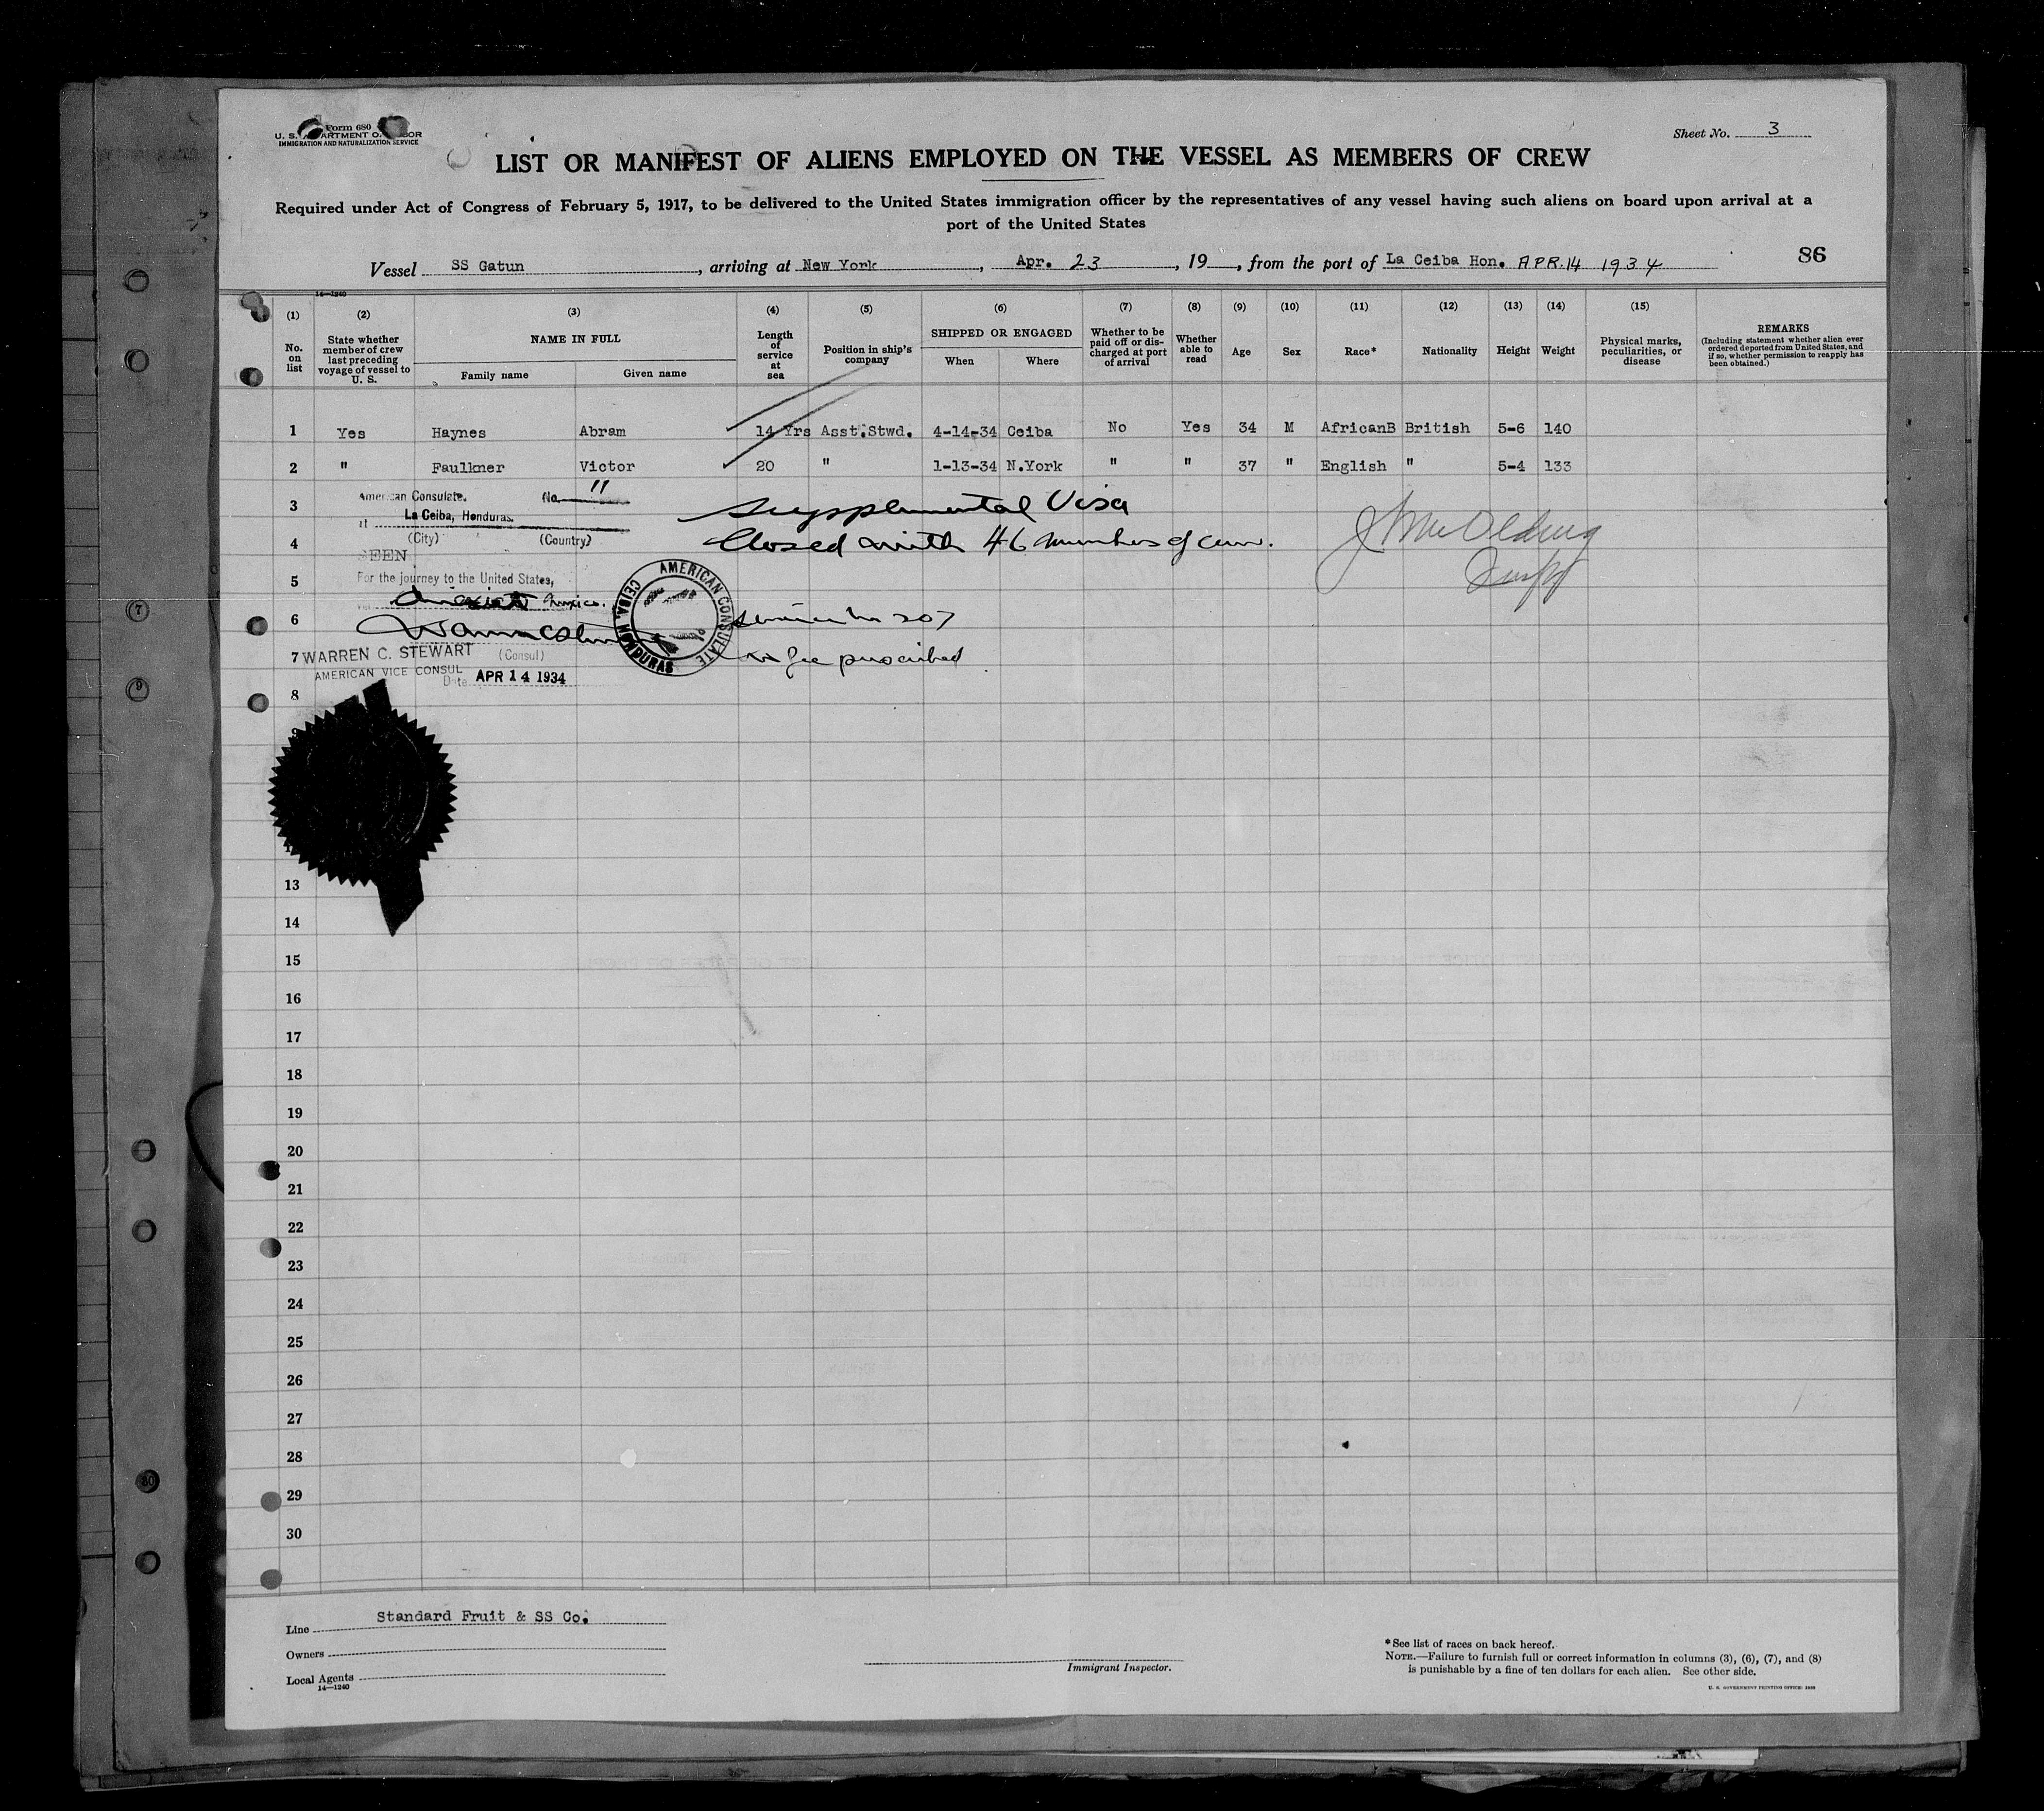 Form 680
U. S. DEPARTMENT OF LABOR
IMMIGRATION AND NATURALIZATION SERVICE
Sheet No. 3
LIST OR MANIFEST OF ALIENS EMPLOYED ON THE VESSEL AS MEMBERS OF CREW
Required under Act of Congress of February 5, 1917, to be delivered to the United States immigration officer by the representatives of any vessel having such aliens on board upon arrival at a
port of the United States
86
Vessel SS Gatun, arriving at New York, Apr. 23, 19, from the port of La Ceiba Hon. APR. 14 1934
14—1240
(1) (2) (3) (4) (5) (6) (7) (8) (9) (10) (11) (12) (13) (14) (15)
No. on list
State whether member of crew last preceding voyage of vessel to U. S.
NAME IN FULL
Family name Given name
Length of service at sea
Position in ship's company
SHIPPED OR ENGAGED
When Where
Whether to be paid off or discharged at port of arrival
Whether able to read
Age
Sex
Race*
Nationality
Height
Weight
Physical marks, peculiarities, or disease
REMARKS
(Including statement whether alien ever ordered deported from United States, and if so, whether permission to reapply has been obtained.)
1 Yes Haynes Abram 14 Yrs Asst.Stwd. 4-14-34 Ceiba No Yes 34 M AfricanB British 5-6 140
2 " Faulkner Victor 20 " 1-13-34 N.York " " 37 " English " 5-4 133
American Consulate. No. "
3 Supplemental Visa
La Ceiba, Honduras.
4 Closed with 46 members of crew.
(City) (Country)
SEEN
5 For the journey to the United States,
AMERICAN CONSULATE
CEIBA HONDURAS
6 Service No 207
7 WARREN C. STEWART (Consul) No fee prescribed
AMERICAN VICE CONSUL
Date APR 14 1934
8
13
14
15
16
17
18
19
20
21
22
23
24
25
26
27
28
29
30
Line Standard Fruit & SS Co.
Owners
Local Agents
14—1240
Immigrant Inspector.
*See list of races on back hereof.
NOTE.—Failure to furnish full or correct information in columns (3), (6), (7), and (8)
is punishable by a fine of ten dollars for each alien. See other side.
U. S. GOVERNMENT PRINTING OFFICE: 1933
7
9
30